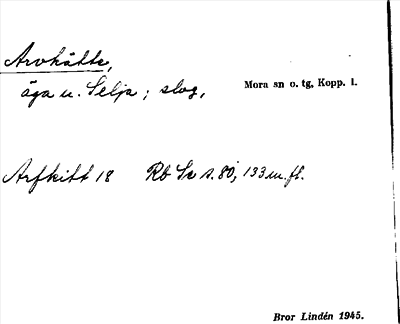 Arvkätte,
äga u. Selja; slog,
Mora sn o. tg, Kopp. l.
Arfkitt 18 Rb Sc s. 80, 133 m. fl.
Bror Lindén 1945.